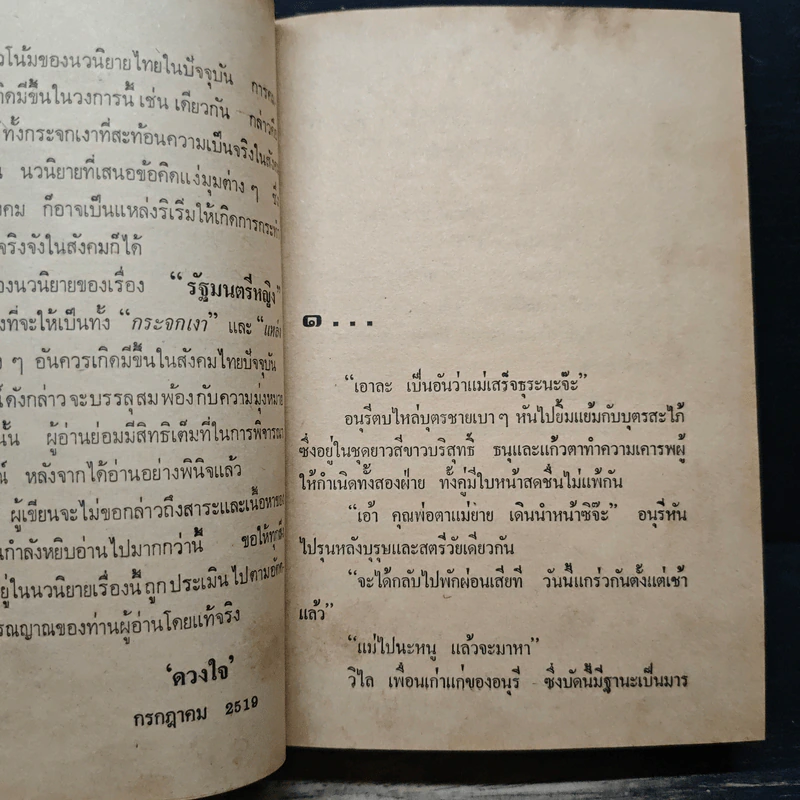 วโน้มของนวนิยายไทยในปัจจุบัน การ
กิดมีขึ้นในวงการนี้ เช่น เดียวกัน กล่าวคือ
ทั้งกระจกเงาที่สะท้อนความเป็นจริงในสังคม
นวนิยายที่เสนอข้อคิดแง่มุมต่าง ๆ ซึ่ง
งคม ก็อาจเป็นแหล่งริเริ่มให้เกิดการกระทำ
จริงจังในสังคมก็ได้
องนวนิยายของเรื่อง “รัฐมนตรีหญิง”
งที่จะให้เป็นทั้ง “กระจกเงา” และ “แหล่ง
ง ๆ อันควรเกิดมีขึ้นในสังคมไทยปัจจุบัน
ณ์ดังกล่าวจะบรรลุสมพ้องกับความมุ่งหมาย
นั้น ผู้อ่านย่อมมีสิทธิเต็มที่ในการพิจารณา
ณ์ หลังจากได้อ่านอย่างพินิจแล้ว
ผู้เขียนจะไม่ขอกล่าวถึงสาระและเนื้อหาของ
นกำลังหยิบอ่านไปมากกว่านี้ ขอให้ทุกสิ่ง
อยู่ในนวนิยายเรื่องนี้ ถูกประเมินไปตาม
รณญาณของท่านผู้อ่านโดยแท้จริง
‘ดวงใจ’
กรกฎาคม 2519
๑...
“เอาละ เป็นอันว่าแม่เสร็จธุระนะจ๊ะ”
อนุรีตบไหล่บุตรชายเบา ๆ หันไปยิ้มแย้มกับบุตรสะใภ้
ซึ่งอยู่ในชุดยาวสีขาวบริสุทธิ์ ธนุและแก้วตาทำความเคารพผู้
ให้กำเนิดทั้งสองฝ่าย ทั้งคู่มีใบหน้าสดชื่นไม่แพ้กัน
“เอ้า คุณพ่อตาแม่ยาย เดินนำหน้าซิจ๊ะ” อนุรีหัน
ไปรุนหลังบุรุษและสตรีวัยเดียวกัน
“จะได้กลับไปพักผ่อนเสียที วันนี้แกร่วกันตั้งแต่เช้า
แล้ว”
“แม่ไปนะหนู แล้วจะมาหา”
วิไล เพื่อนเก่าแก่ของอนุรี ซึ่งบัดนี้มีฐานะเป็นมาร